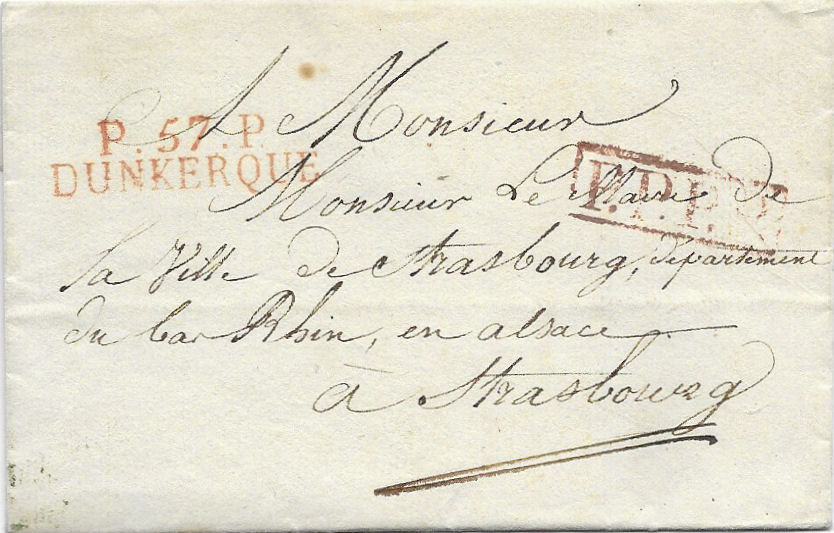 A Monsieur
P. 57. P.
DUNKERQUE
Monsieur Le Maire de
P.P.P.P.
la Ville de Strasbourg, département
du bas Rhin, en alsace
à Strasbourg